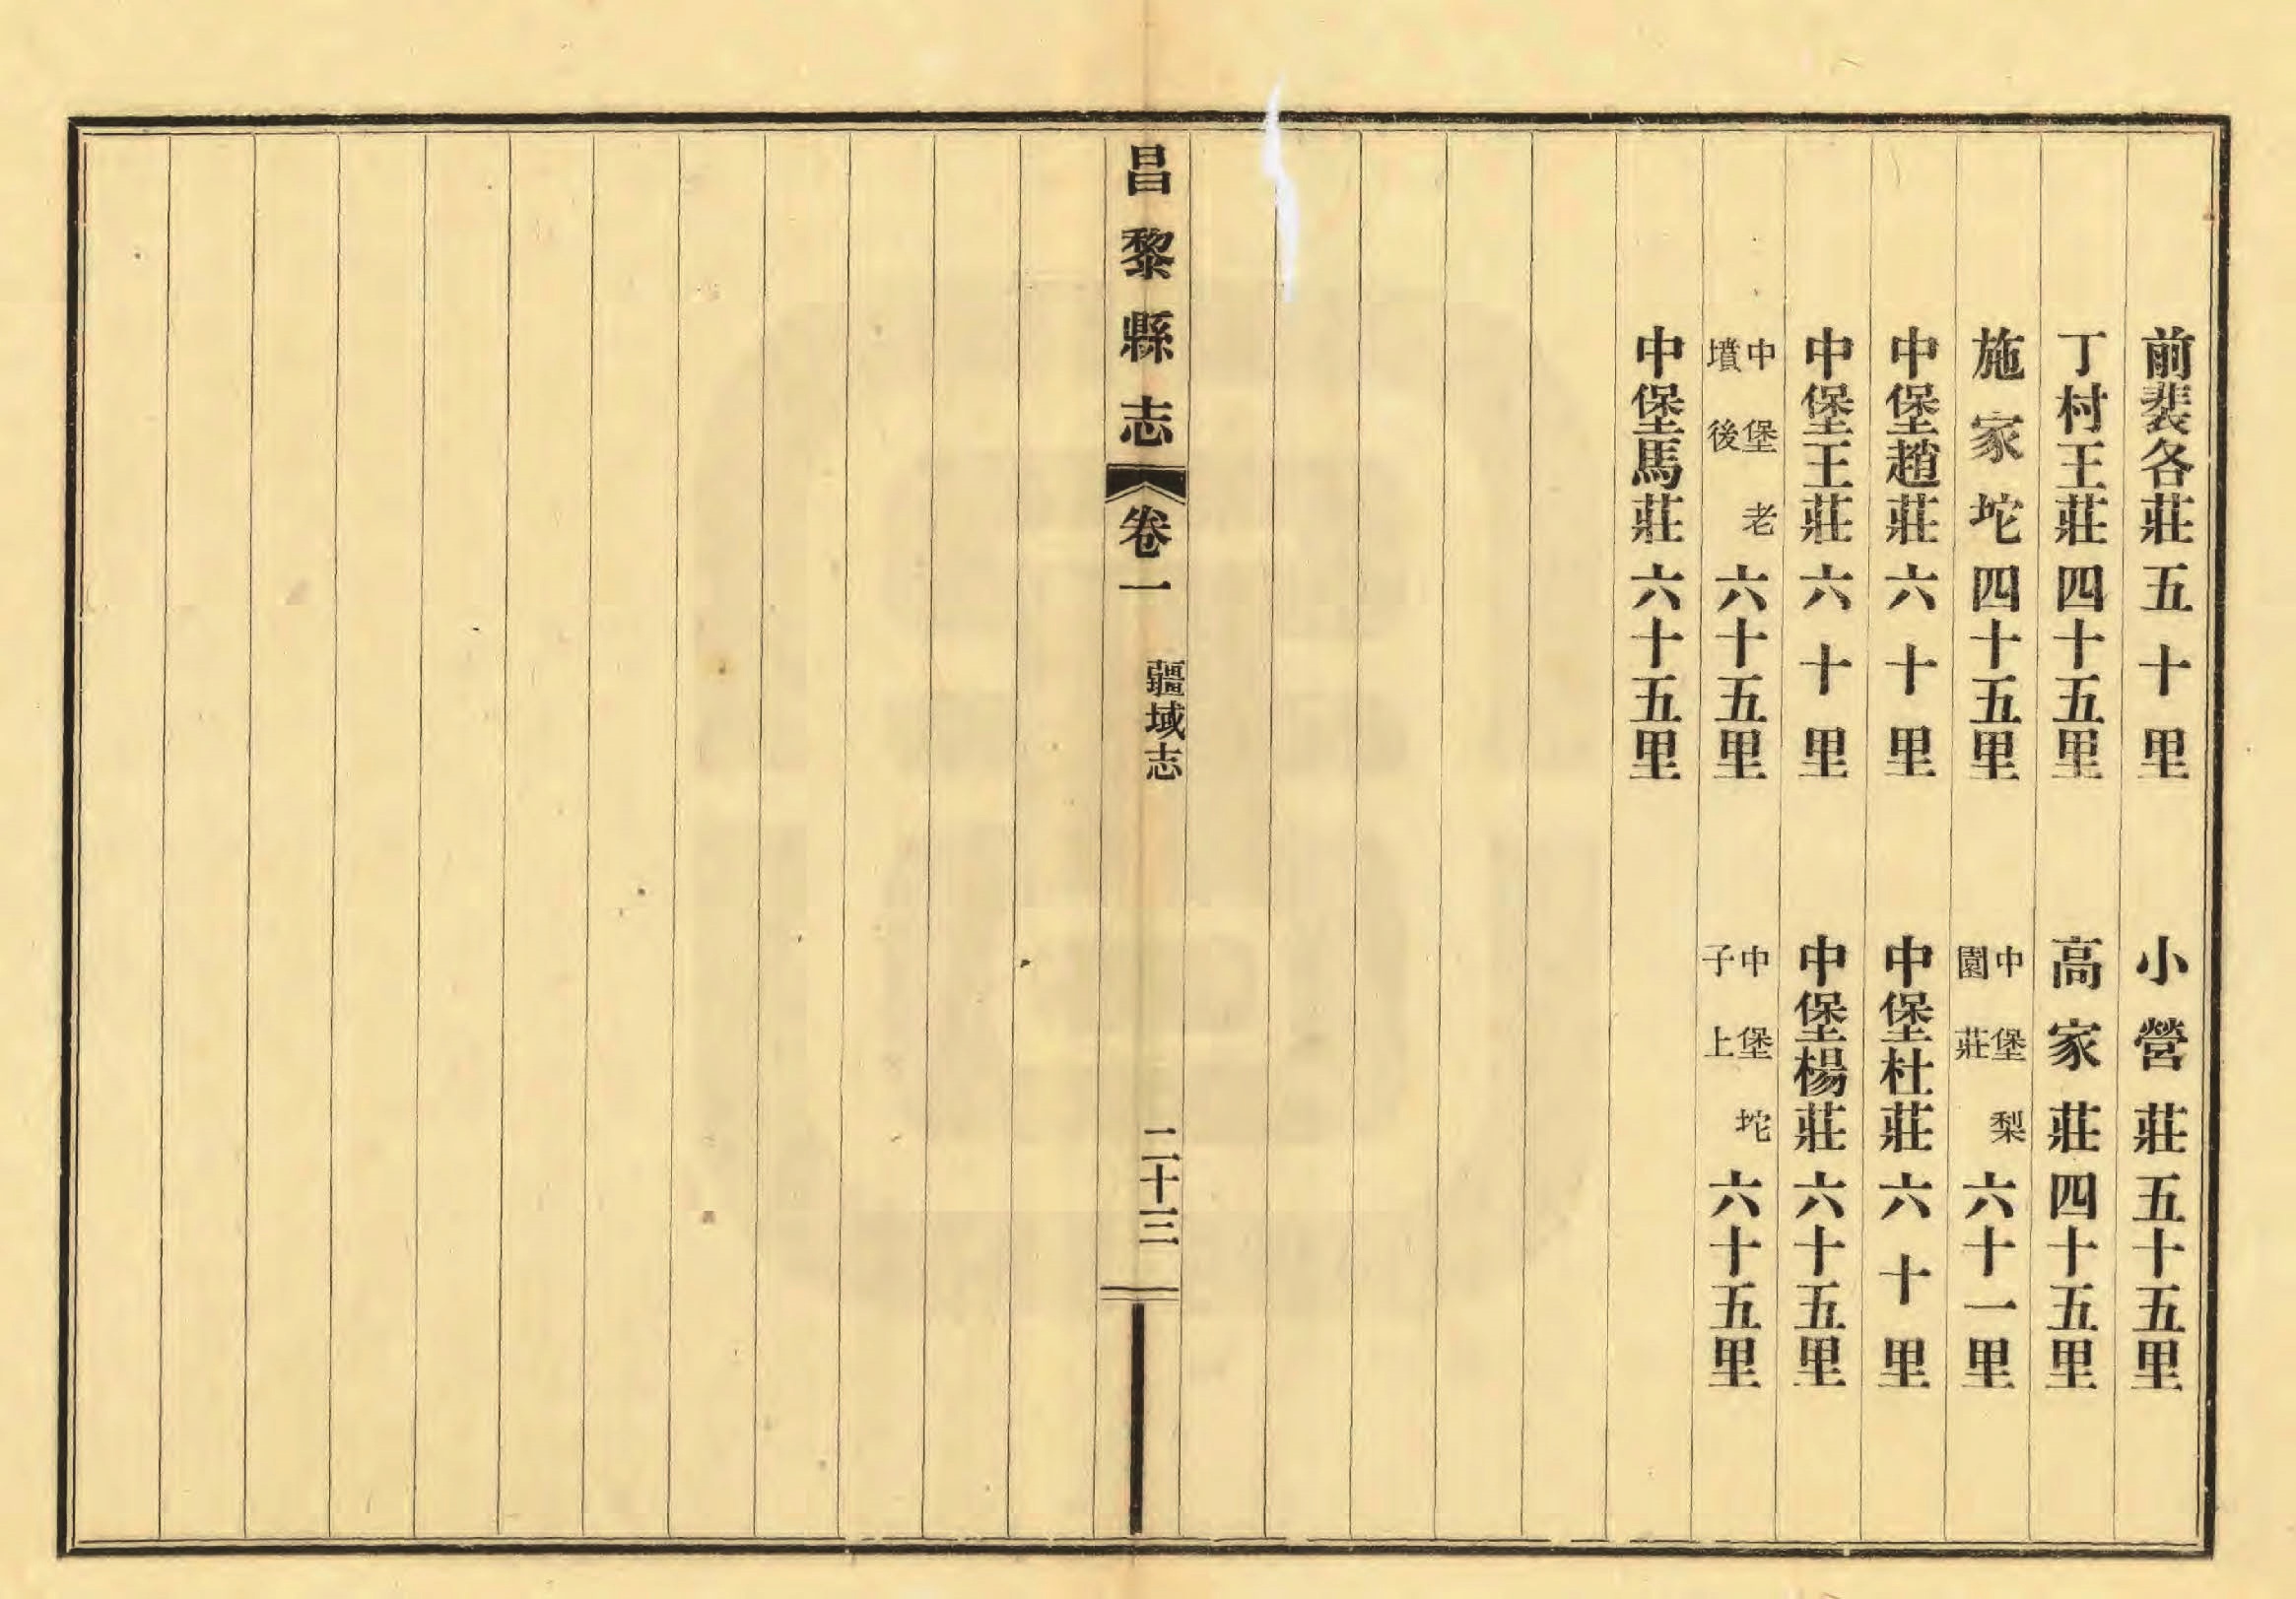 前裴各莊五十里　小營莊五十五里
丁村王莊四十五里　高家莊四十五里
施家坨四十五里　中堡梨園莊六十一里
中堡趙莊六十里　中堡杜莊六十里
中堡王莊六十里　中堡楊莊六十五里
中堡老墳後六十五里　中堡坨子上六十五里
中堡馬莊六十五里
昌黎縣志　卷一　疆域志　二十三